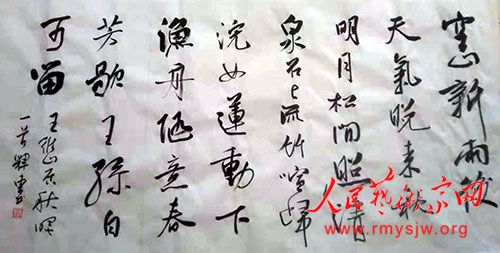 空山新雨後
天氣晚来秋
明月松間照清
泉石上流竹喧歸
浣女蓮動下
漁舟随意春
芳歇王孫自
可留 王維山居秋暝
一首
人民艺术家网
www.rmysjw.org